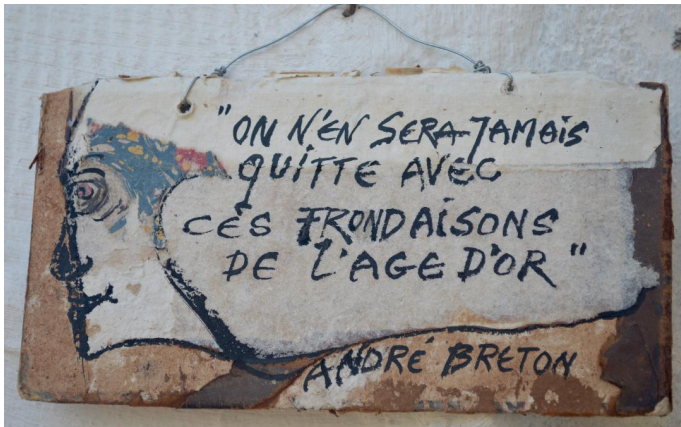 "ON N'EN SERA JAMAIS
QUITTE AVEC
CES FRONDAISONS
DE L'AGE D'OR"
ANDRÉ BRETON